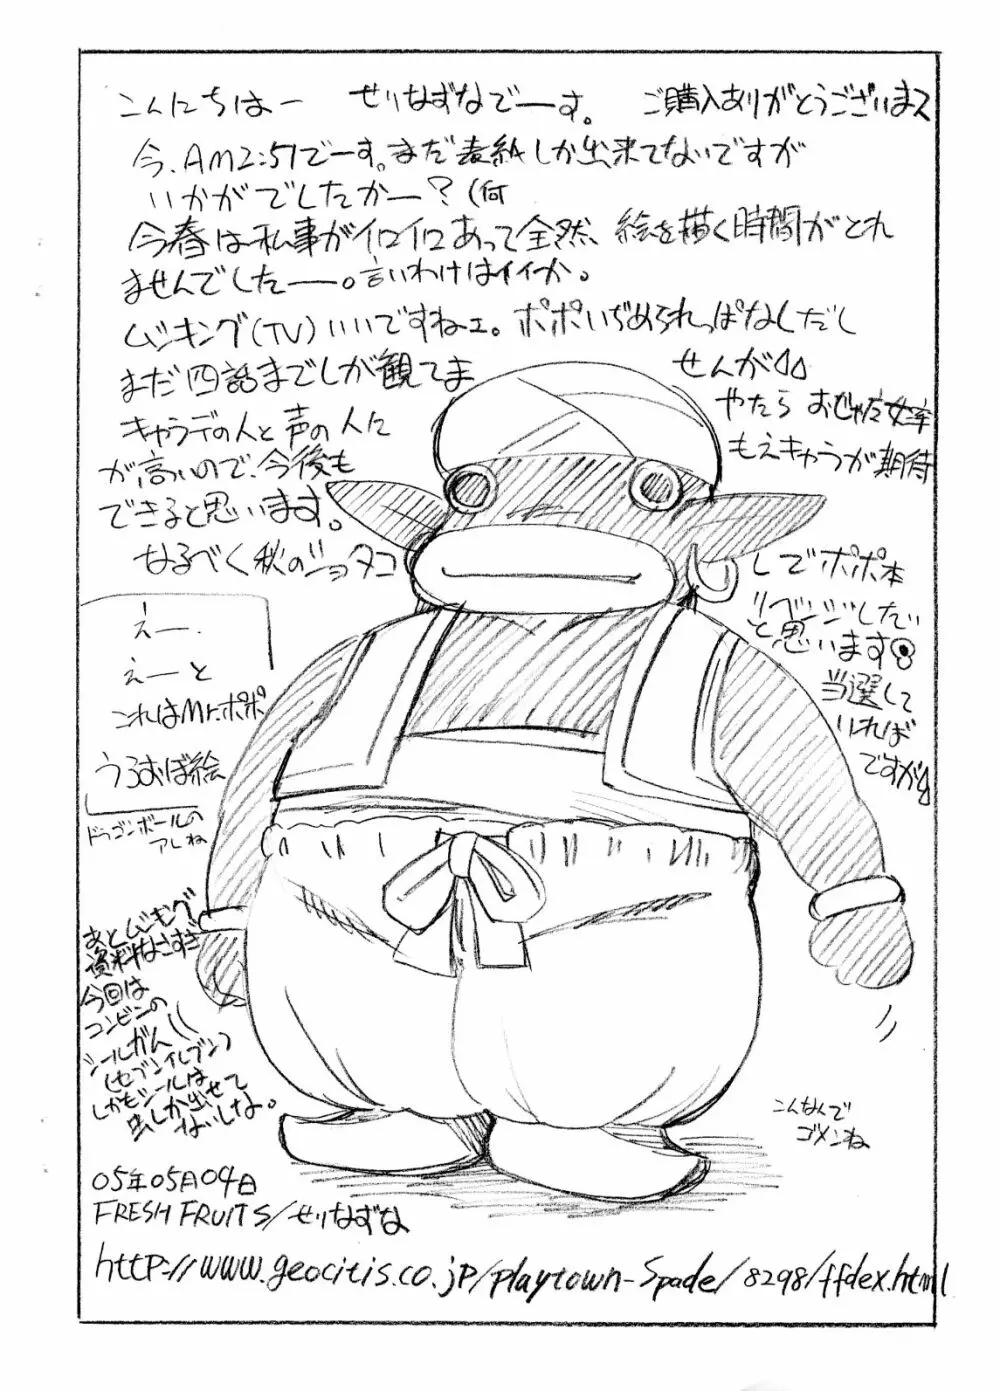 こんにちはー　せりなずなでーす。　ご購入ありがとうございまス
今、AM2:57でーす。まだ表紙しか出来てないですが
いかがでしたかー？(何
今春は私事がイロイロあって全然、絵を描く時間がとれ
ませんでしたーー。言いわけはイイか。
ムシキング(TV)いいですねェ。ポポいぢめられっぱなしだし
まだ四話までしか観てま
せんが
キャラデの人と声の人に
やたら おジャ魔女率
が高いので、今後も
もえきゃらが期待
できると思います。
なるべく秋のショタコ
ンでポポ本
リベンジしたい
と思います
当選して
いれば
ですが
えー、
えーと
これはMr.ポポ
うろおぼ絵
ドラゴンボールの
アレね
あとムシキング
資料なさすぎ
今回は
コンビニの
シールがん
(セブンイレブン)
しかもシールは
虫しか出せて
ないしな。
こんなんで
ゴメンね
05年05月04日
FRESH FRUITS/せりなずな
http://www.geocitis.co.jp/playtown-Spade/8298/ffdex.html